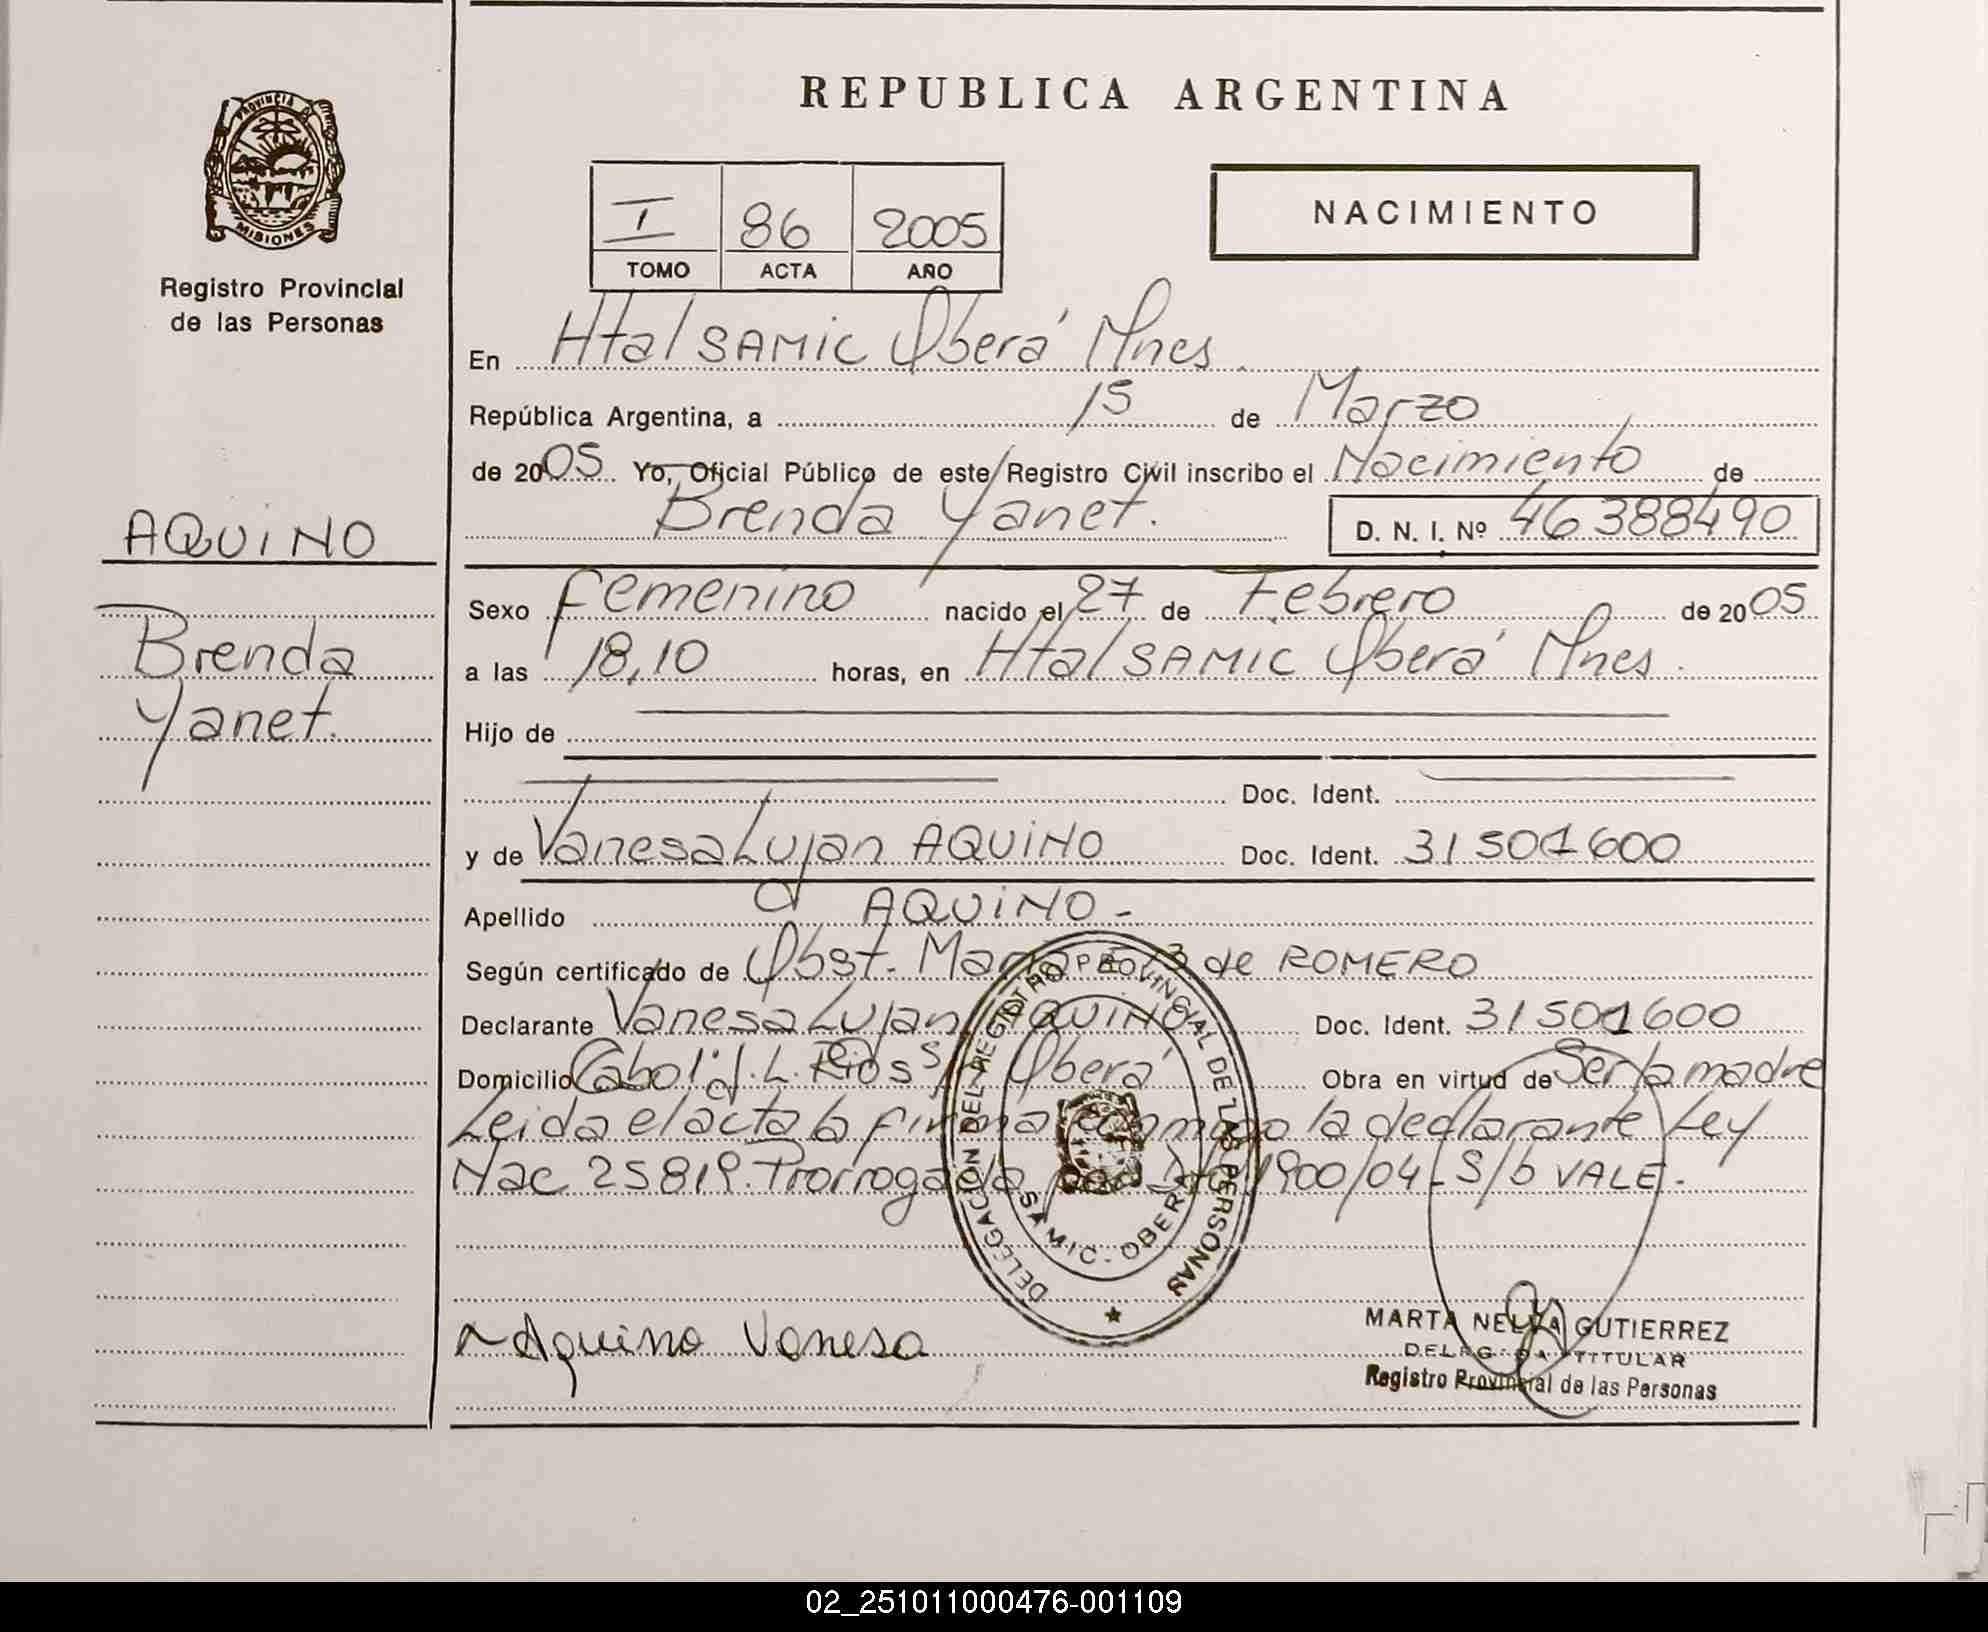 REPUBLICA ARGENTINA
PROVINCIA
MISIONES
Registro Provincial
de las Personas
I 86 2005
TOMO ACTA AÑO
NACIMIENTO
En Htal SAMIC Oberá Mnes
República Argentina, a 15 de Marzo
de 2005 Yo, Oficial Público de este Registro Civil inscribo el Nacimiento de
Brenda Yanet. D. N. I. Nº 46388490
AQUINO
Brenda
Yanet.
Sexo Femenino nacido el 27 de Febrero de 2005
a las 18,10 horas, en Htal SAMIC Oberá Mnes.
Hijo de
Doc. Ident.
y de Vanesa Lujan AQUINO Doc. Ident. 31501600
Apellido AQUINO-
Según certificado de Obst. Maria de ROMERO
Declarante Vanesa Lujan AQUINO Doc. Ident. 31501600
Domicilio J. L. Rios s/n Oberá Obra en virtud de Ser la madre
Leida el acta la firma conmigo la declarante Ley
Nac 25819. Prorrogada por 1900/04- S/b VALE.-
DELEGACION DEL REGISTRO PROVINCIAL DE LAS PERSONAS
SAMIC-OBERA
Aquino Vanesa
MARTA NELVA GUTIERREZ
DELEGADA TITULAR
Registro Provincial de las Personas
02_251011000476-001109